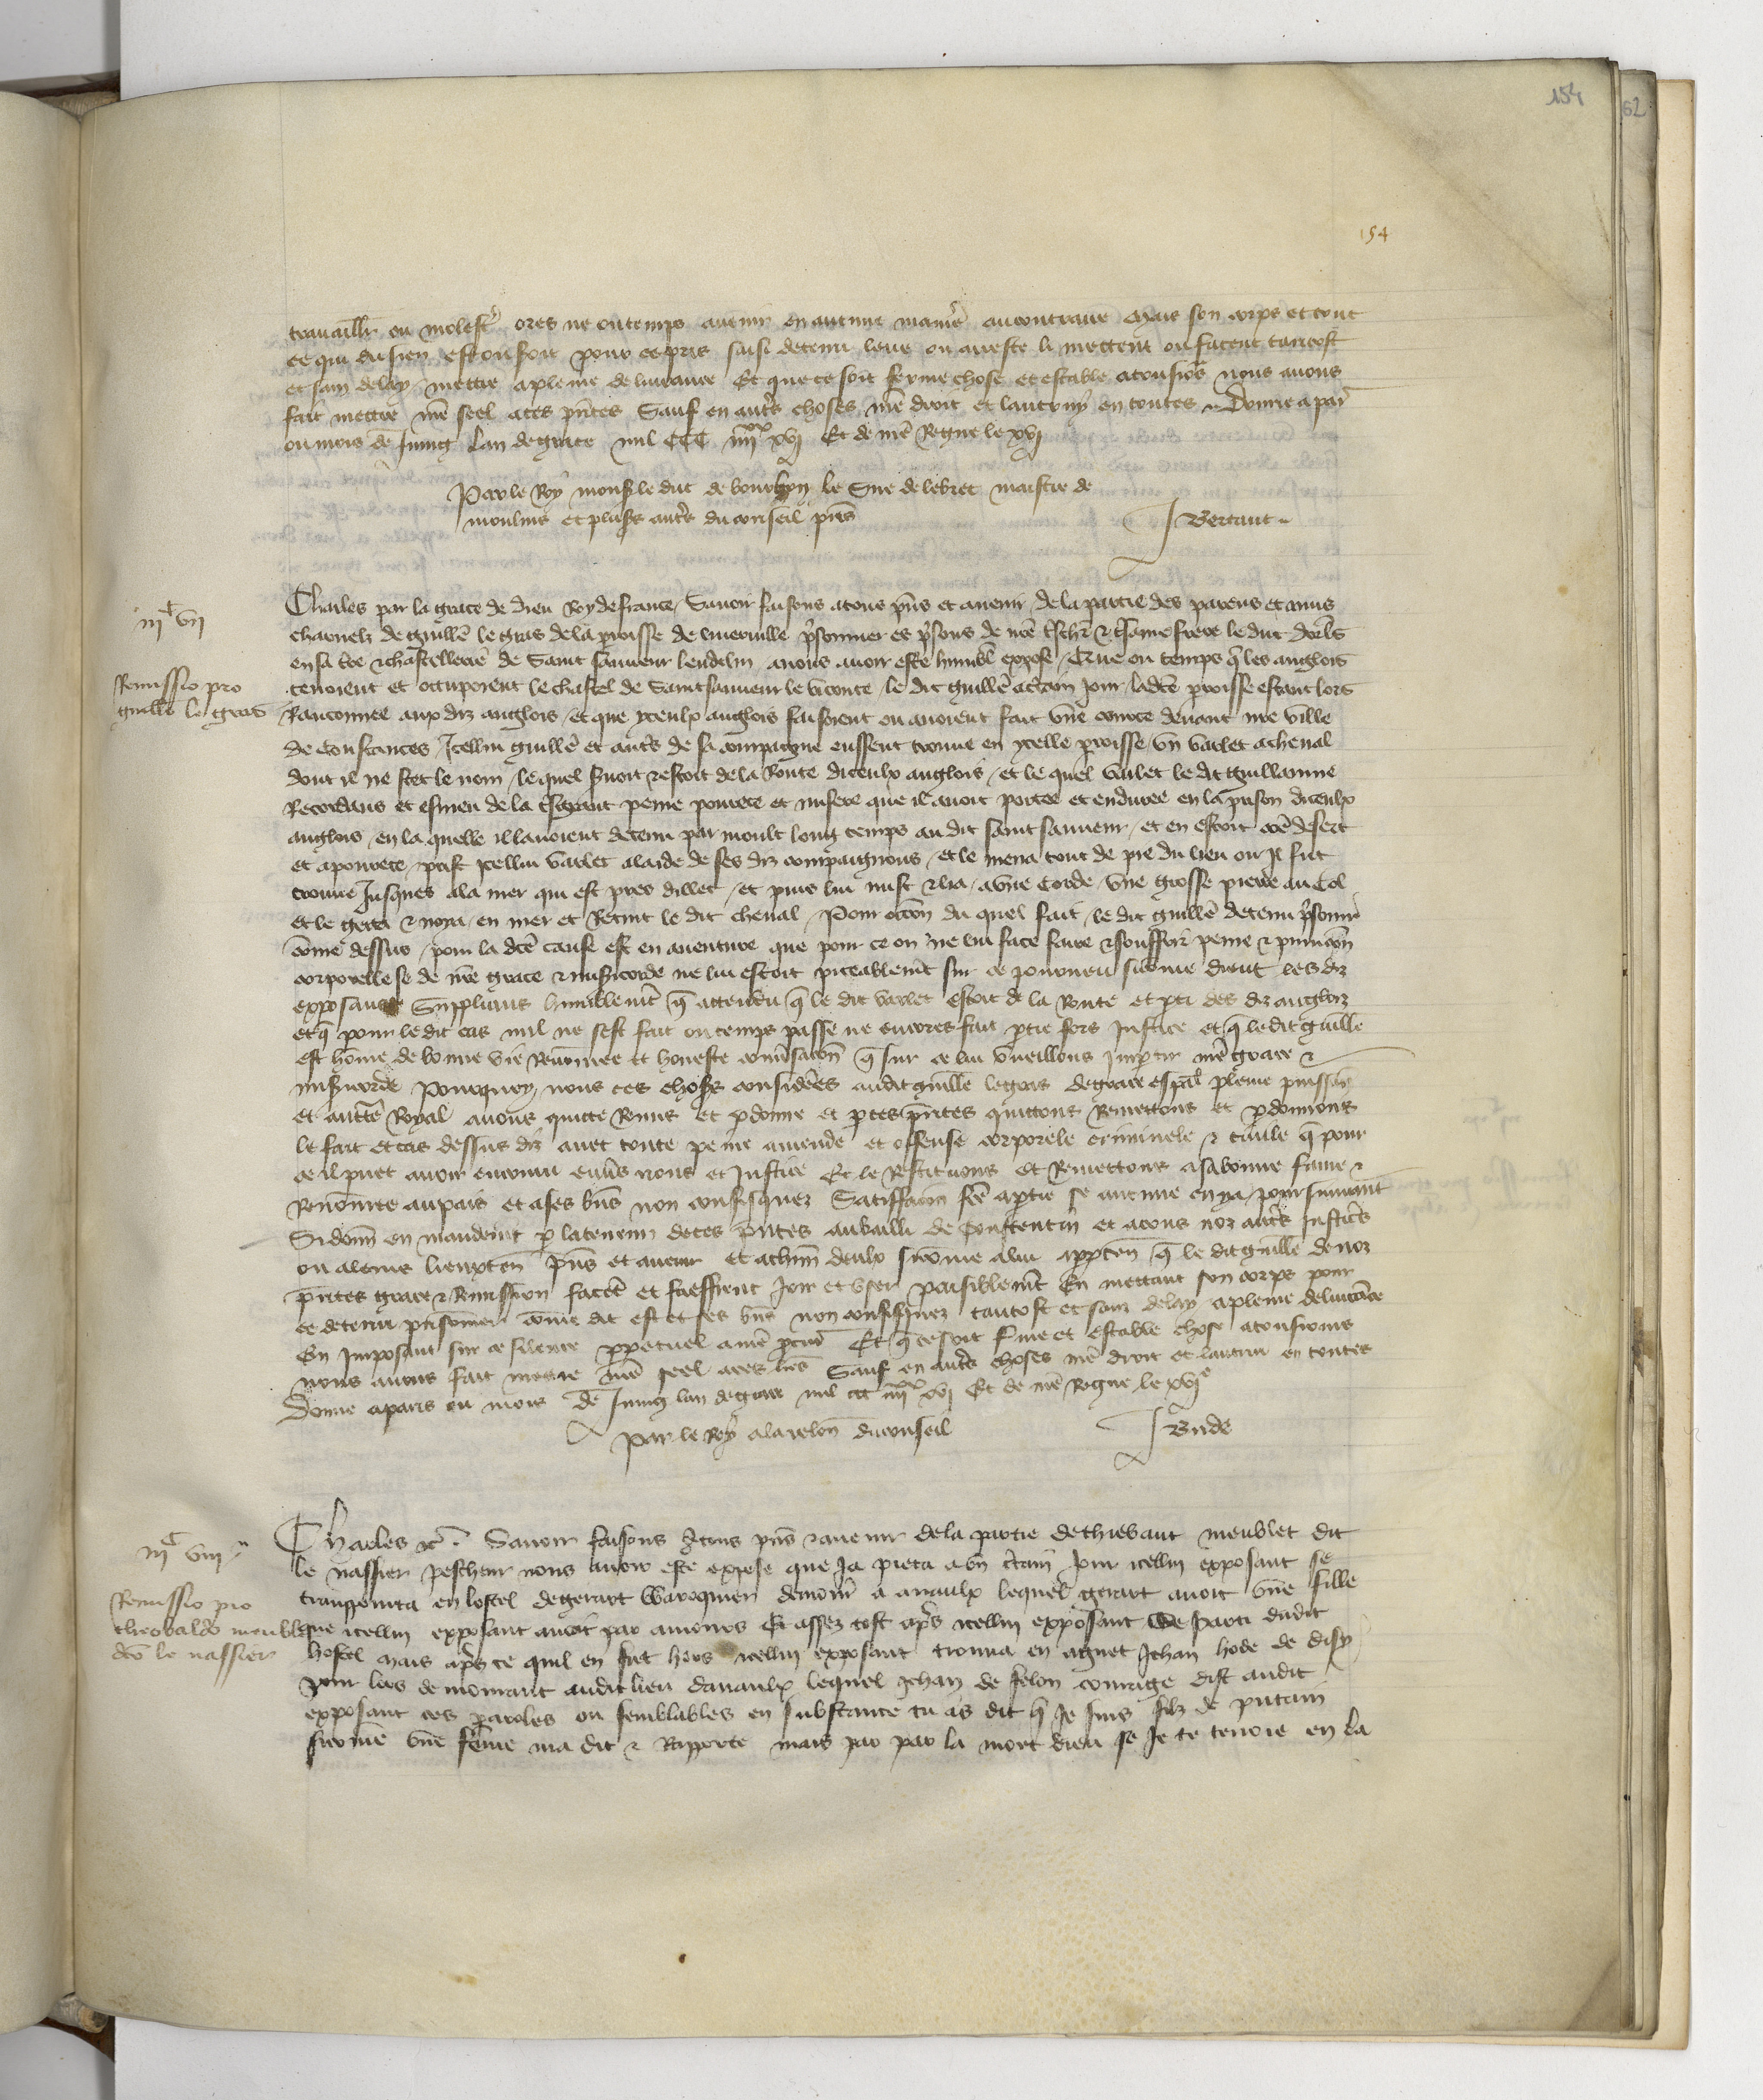 154
62
154
travaillr ou molestr ores ne ou temps avenir en aucune maniere au contraire Mais son corps et tout
ce qui du sien est ou soit pour ce pris saisi detenu leve ou arreste li mettent ou facent tantost
et sans delay mettre a pleine delivrance Et que ce soit ferme chose et estable a tousjors nous avons
fait mettre nre seel a ces pntes Sauf en autrs choses nre droit et lautruy en toutes Donne a par
ou mois de Juing Lan de grace mil CCC iiiixx xvj Et de nre Regne le xvj
Par le Roy monsr le duc de bourbon le Sire de lebret maistre de
moulins et plusrs autrs du conseil pns
J Bertaut
iijc vij
Remissio pro
guille le gras
Charles par la grace de dieu Roy de france Savoir faisons a tous pns et avenir de la partie des parens et amis
charnelz de guille le gras de la proisse de prsonnier es prsons de nre tschr & tsame frere le duc dorls
en sa tre & chastellerie de Saint sauveur lendelin a nous avoir este humblet expose Que ou temps q les anglois
tenoient et occupoient le chastel de Saint sauveur le viconte le dit guille a ctain jour ladce proisse estant lors
Ranconnee aux diz anglois et que yceulx anglois faisoient ou avoient fait une course devant nre ville
de Constances Icellui guille et autrs de sa compaigne eussent trouve en ycelle proisse un varlet a cheval
dont il ne scet le nom lequel suoit & estoit de la Route diceulx anglois et le quel varlet le dit guillaume
Recordans et esmeu de la tsgrant peine povrete et misere que il avoit portee et enduree en la prison diceulx
anglois en la quelle il lavoient detenu par moult long temps au dit saint sauveur et en estoit desert
et apovrete prist icellui varlet a laide de ses diz compaignons et le mena tout de pie du lieu ou Il fut
trouve Jusques a la mer qui est pres dillec et puis lui mist & lia a une corde une grosse pierre au Col
et le getta & noya en mer et Retint le dit cheval Pour occon du quel fait le dit guille detenu prsonnir
come dessus pour la dce cause est en aventure que pour ce on ne lui face faire & souffrir peine & punicon
corporelle se de nre grace & misicorde ne lui estoit piteablemt sur ce pourveu si come dient les diz
exposans Supplians humblemt q attendu q le dit varlet estoit de la Route et pti des diz anglois
et q pour le dit cas nul ne sest fait ou temps passe ne encores fait ptie fors Justice et q le dit guille
est home de bonne vie Renomee et honeste convsacon q sur ce lui vueillons Impartir nre grace &
misicorde Pourquoy nous ces choses considees audit guille le gras de grace espal pleine puissan
et auctte Royal avons quitte Remis et pdonne et p ces pntes quittons Remettons et pdonnons
le fait et cas dessus diz avec toute peine amende et offense corporele criminele & civile q pour
ce il puet avoir encouru envs nous et Justice Et le Restituons et Remettons a sa bonne fame &
Renomee au pais et a ses bns non confisquez Satisfacon fce a ptie se aucune en ya poursuivant
Si donn en mandemt p la teneur de ces pntes au bailli de Constentin et a tous noz autrs Justicrs
ou a leurs lieuxten pns et avenir et a chun deulx si come a lui apptien q le dit guille de noz
pntes grace & Remission facet et laissient Joir et user paisiblemt En mettant son corps pour
ce detenu prisonnier come dit est et ses bns non confisquez tantost et sans delay a pleine delivrance
En Imposant sur ce silence ppetuel a nre pcur Et q ce soit ferme et estable chose a tousjours
nous avons fait mettre nre seel a ces lres Sauf en autrs choses nre droit et lautrui en toutes
Donne a paris ou mois de Juing lan de grace mil ccc iiiixx xvj Et de nre Regne le xvje
Par le Roy a la relon du conseil
J Bude
iijc viij
Remissio pro
theobaldo meublet
dco le nassier
Charles &c Savoir faisons a tous pns & avenir de la partie de thiebaut meublet dit
le nassier pescheur nous avoir este expose que Ja pieca a un ctain Jour icellui exposant se
transporta en lostel de gerart waroquier demour a lequel gerart avoit une fille
que icellui exposant avoit par amours Et assez tost aprs icellui exposant se parti dudit
hostel Mais aprs ce quil en fut hors icellui exposant trouva en aguet Jehan hode de disy
pour lors demourant audit lieu lequel Jehan de felon courage dist audit
exposant ces paroles ou semblables en substance tu as dit q Je suis filz de putain
si come une feme ma dit & Rapporte mais par par la mort dieu se Je te tenoie en la